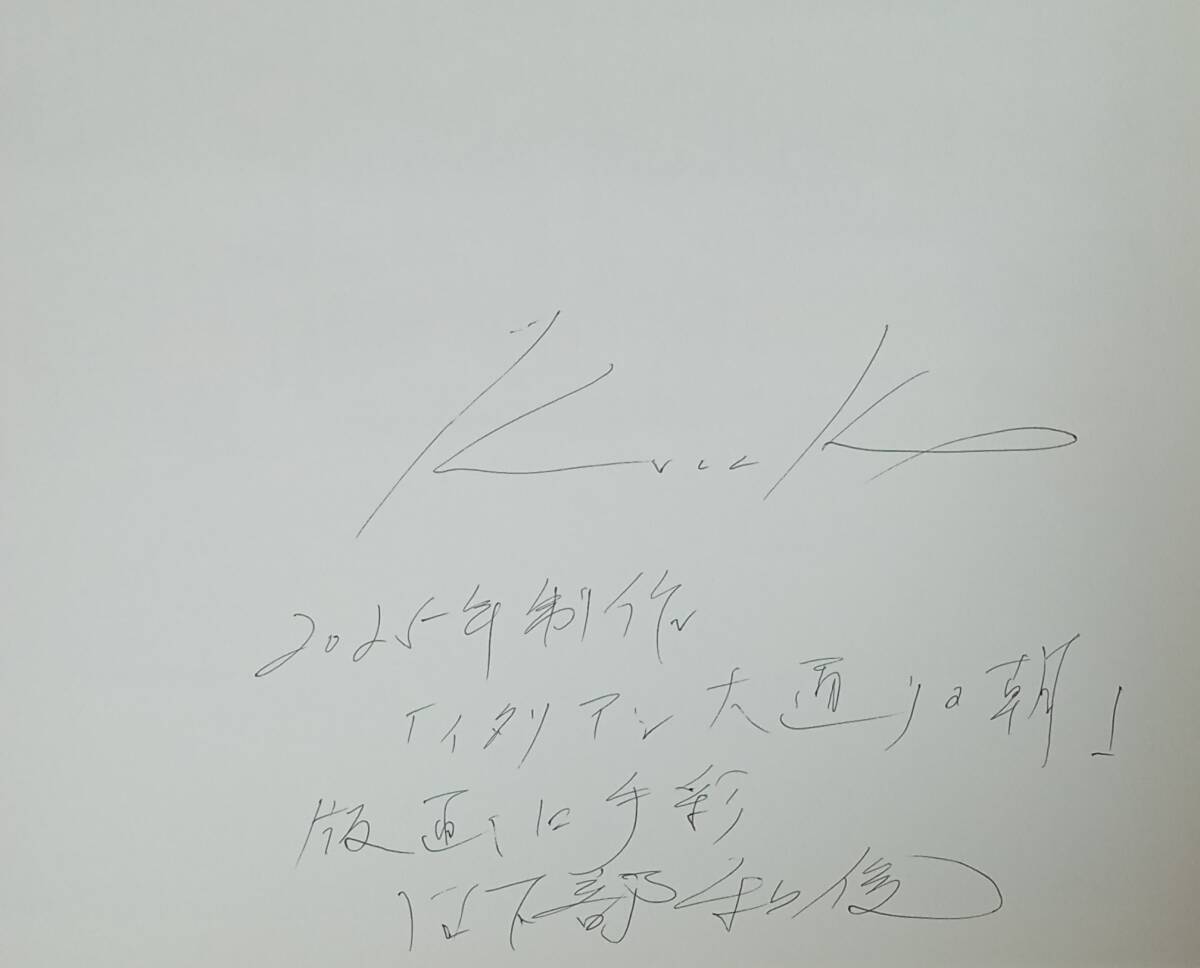 2025年制作
「イタリアン大通りの朝」
版画に手彩
日下部和俊